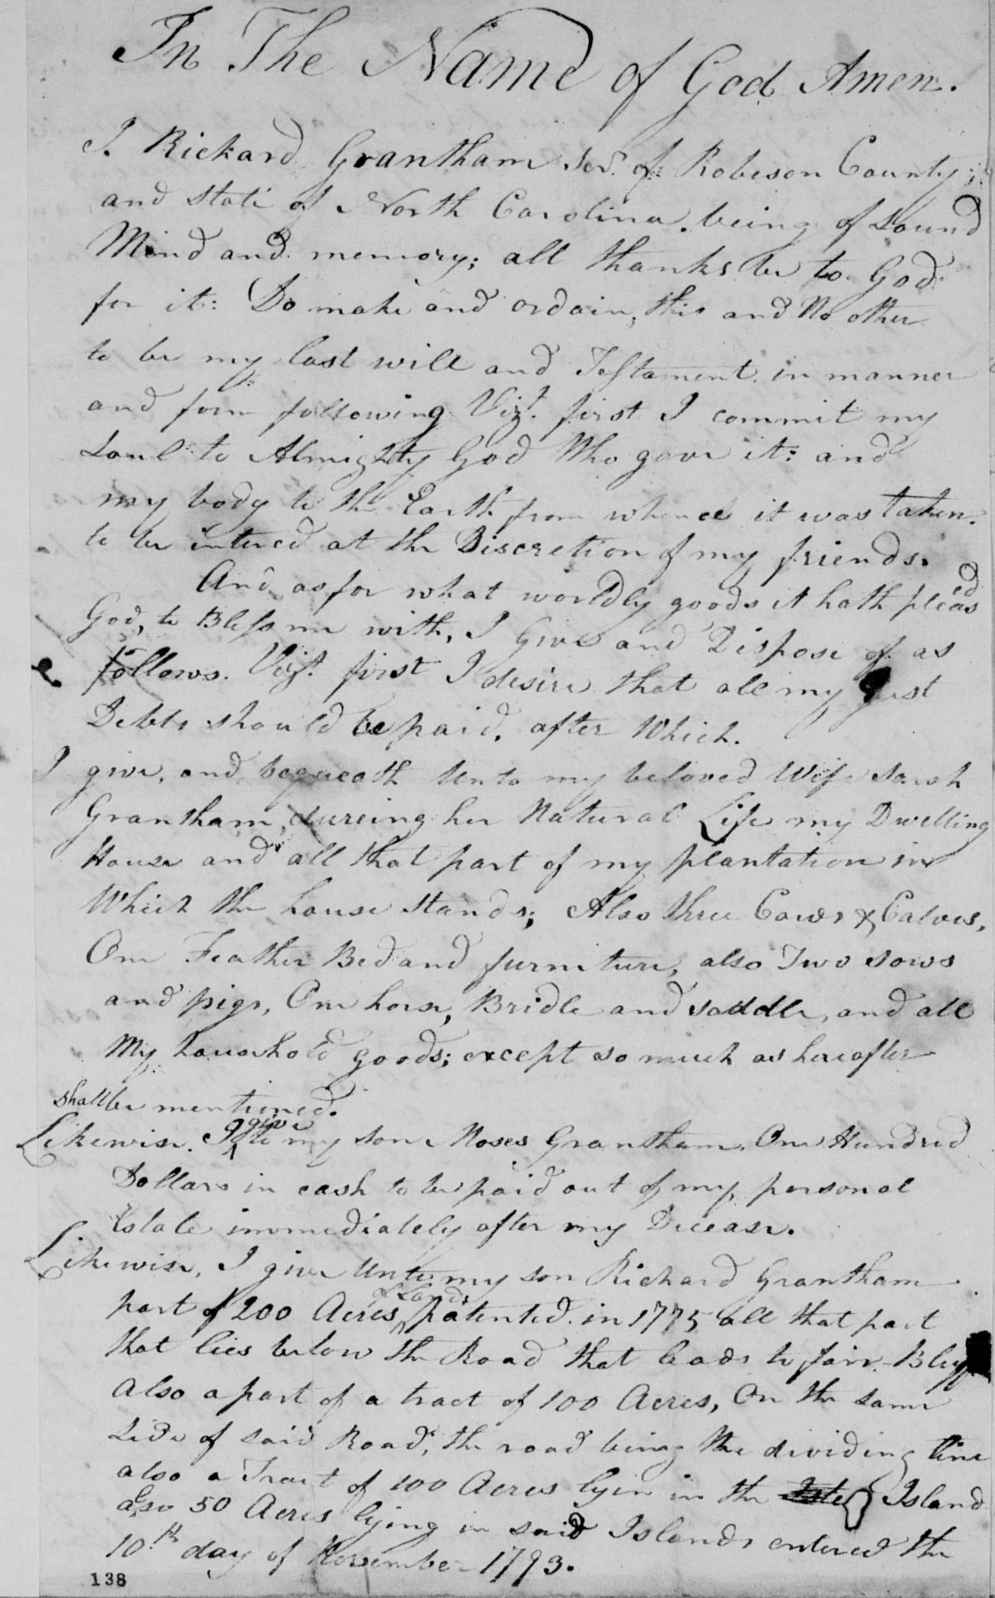 In The Name of God Amen.
I. Rickard Grantham Senr. of Robeson County;
and State of North Carolina. being of Sound
Mind and memory; all thanks be to God
for it: Do make and ordain, this and No other
to be my last will and Testament in manner
and form following Vizt. first I commit my
Soul to Almighty God Who gave it: and
my body to the Earth from whence it was taken.
to be intered at the Discretion of my friends.
And as for what worldly goods it hath pleasd
God, to Bless me with, I Give and Dispose of as
follows. Vizt. first I desire that all my just
Debts should be paid, after Which.
I give, and bequeath Unto my beloved Wife Sarah
Grantham, dureing her Natural Life my Dwelling
House and all that part of my plantation in
Which the house stands; Also three Cows & Calves,
One Feather Bed and furniture, also Two sows
and pigs, One horse, Bridle and saddle, and all
My household goods; except so much as hereafter
shall be mentioned.
Likewise. I give to my son Moses Grantham One Hundred
Dollars in cash to be paid out of my personal
Estate immediately after my Decease.
Likewise, I give Unto my son Richard Grantham
part of 200 Acres of Land patented in 1775 all that part
that lies below the Road that leads to fair Bluff
also a part of a tract of 100 Acres, On the same
Side of said Road, the road being the dividing line
also a Tract of 100 Acres lyin in the Island
also 50 Acres lying in said Islands entered the
10th day of November 1793.
138